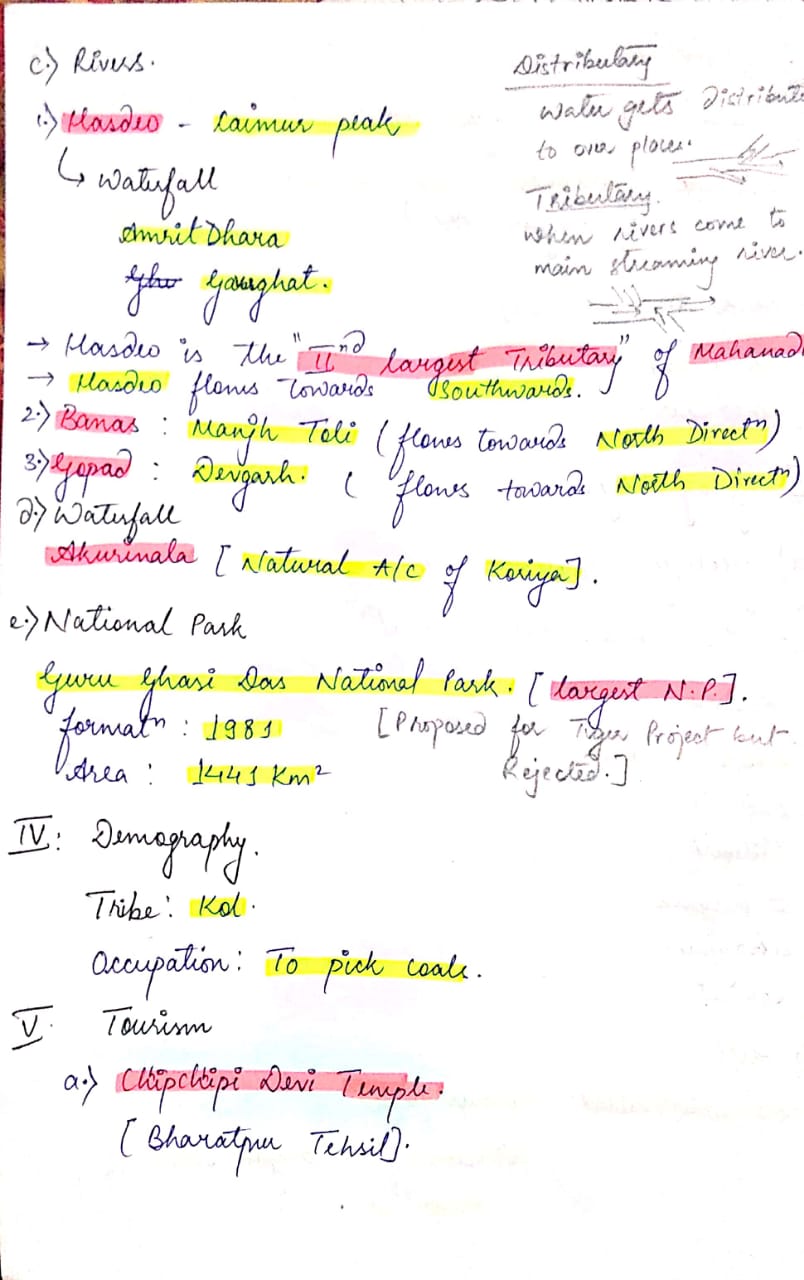 c.) Rivers.
1.) Hasdeo - Kaimur peak
↳ Waterfall
Amrit Dhara
Gavarghat.
Distributary
Water gets Distribute
to over places.
Tributary.
When rivers come to
main streaming river.
→ Hasdeo is the "IInd largest Tributary" of Mahanadi
→ Hasdeo flows towards Southwards.
2.) Banas : Manjh Toli (flows towards North Directn)
3.) Gopad : Devgarh. ( flows towards North Directn)
d.) Waterfall
Akurinala [Natural A/c of Koriya].
e.) National Park
Guru Ghasi Das National Park. [largest N.P.].
formatn : 1981 [Proposed for Tiger Project but
Area : 1441 Km² Rejected.]
IV: Demography.
Tribe: Kol.
Occupation: To pick coal.
V. Tourism
a.) Chipchipi Devi Temple.
[Bharatpur Tehsil].